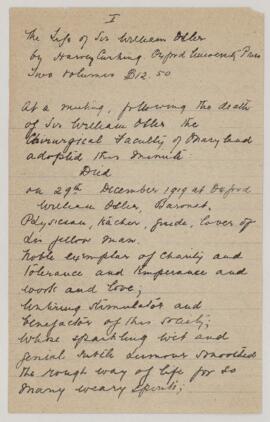 I
The Life of Sir William Osler
by Harvey Cushing. Oxford University Press
Two Volumes $12.50
At a meeting, following the death
of Sir William Osler the
Chirurgical Faculty of Maryland
adopted this minute
Died
on 29th December 1919 at Oxford
William Osler, Baronet.
Physician, teacher, guide, lover of
his fellow man.
Noble exemplar of charity and
tolerance and temperance and
work and love;
Untiring stimulator and
benefactor of this society;
Whose sparkling wit and
genial subtle humour smoothed
the rough way of life for so
many weary spirits;